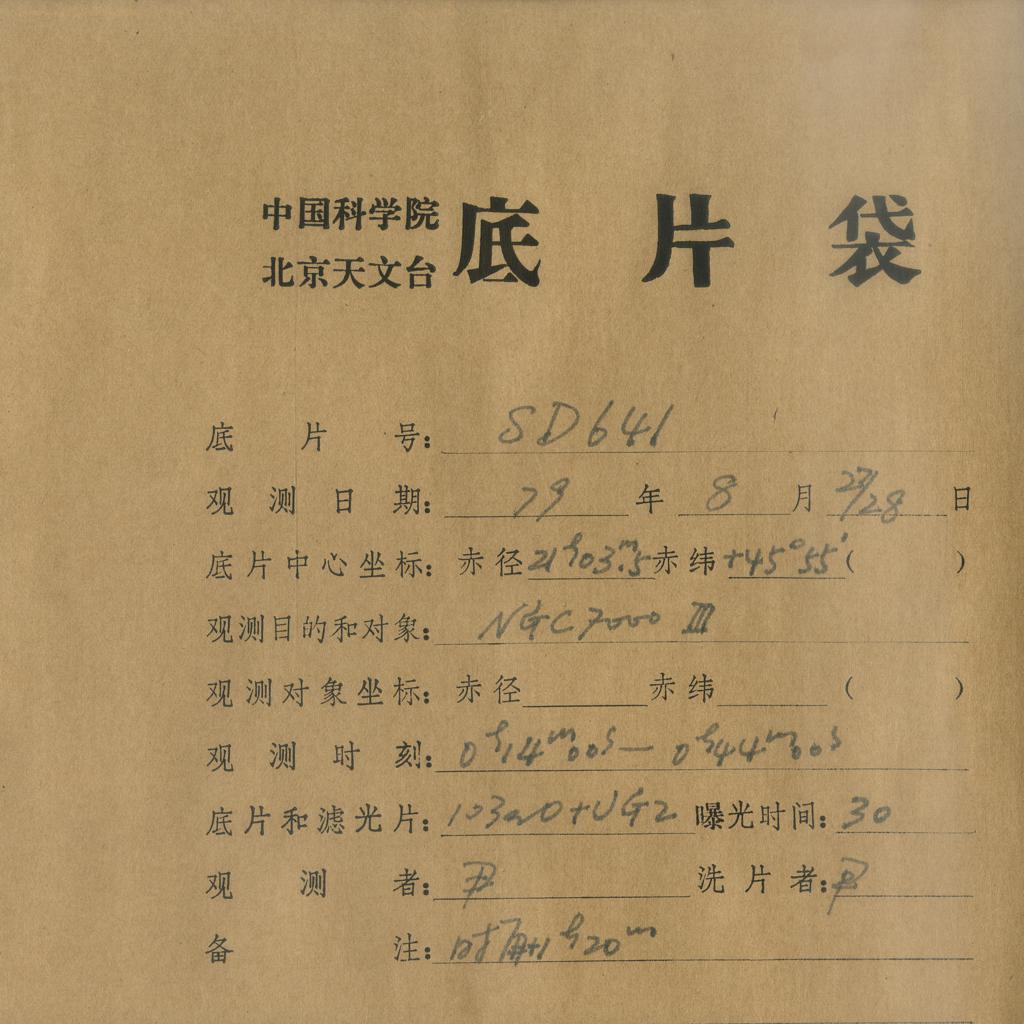 中国科学院
北京天文台
底片袋
底片号: SD641
观测日期: 79年8月27/28日
底片中心坐标: 赤径21h03m.5赤纬+45°55′( )
观测目的和对象: NGC7000 Ⅲ
观测对象坐标: 赤径 赤纬 ( )
观测时刻: 0h14m00s—0h44m00s
底片和滤光片: 103aO+UG2 曝光时间: 30
观测者: 洗片者:
备注: 时角+1h20m